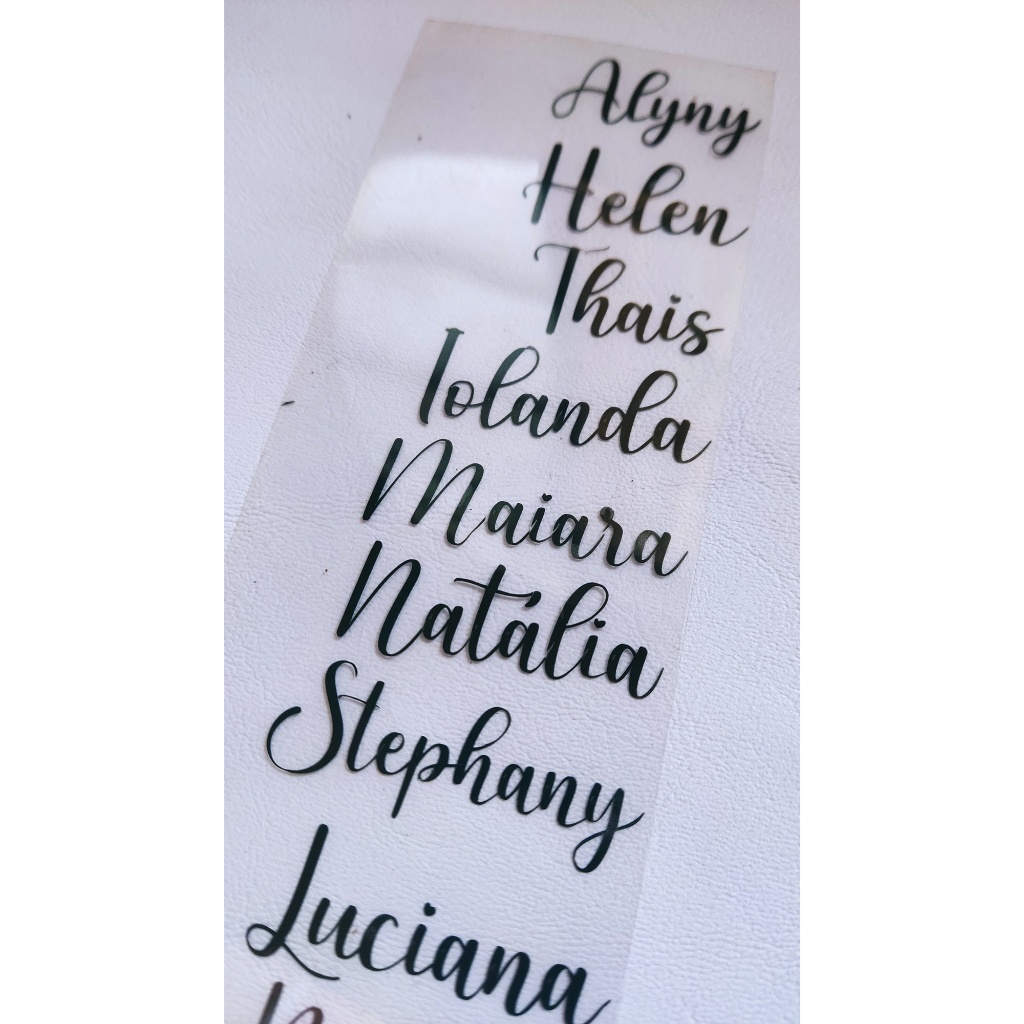 Alyny
Helen
Thais
Iolanda
Maiara
Natália
Stephany
Luciana